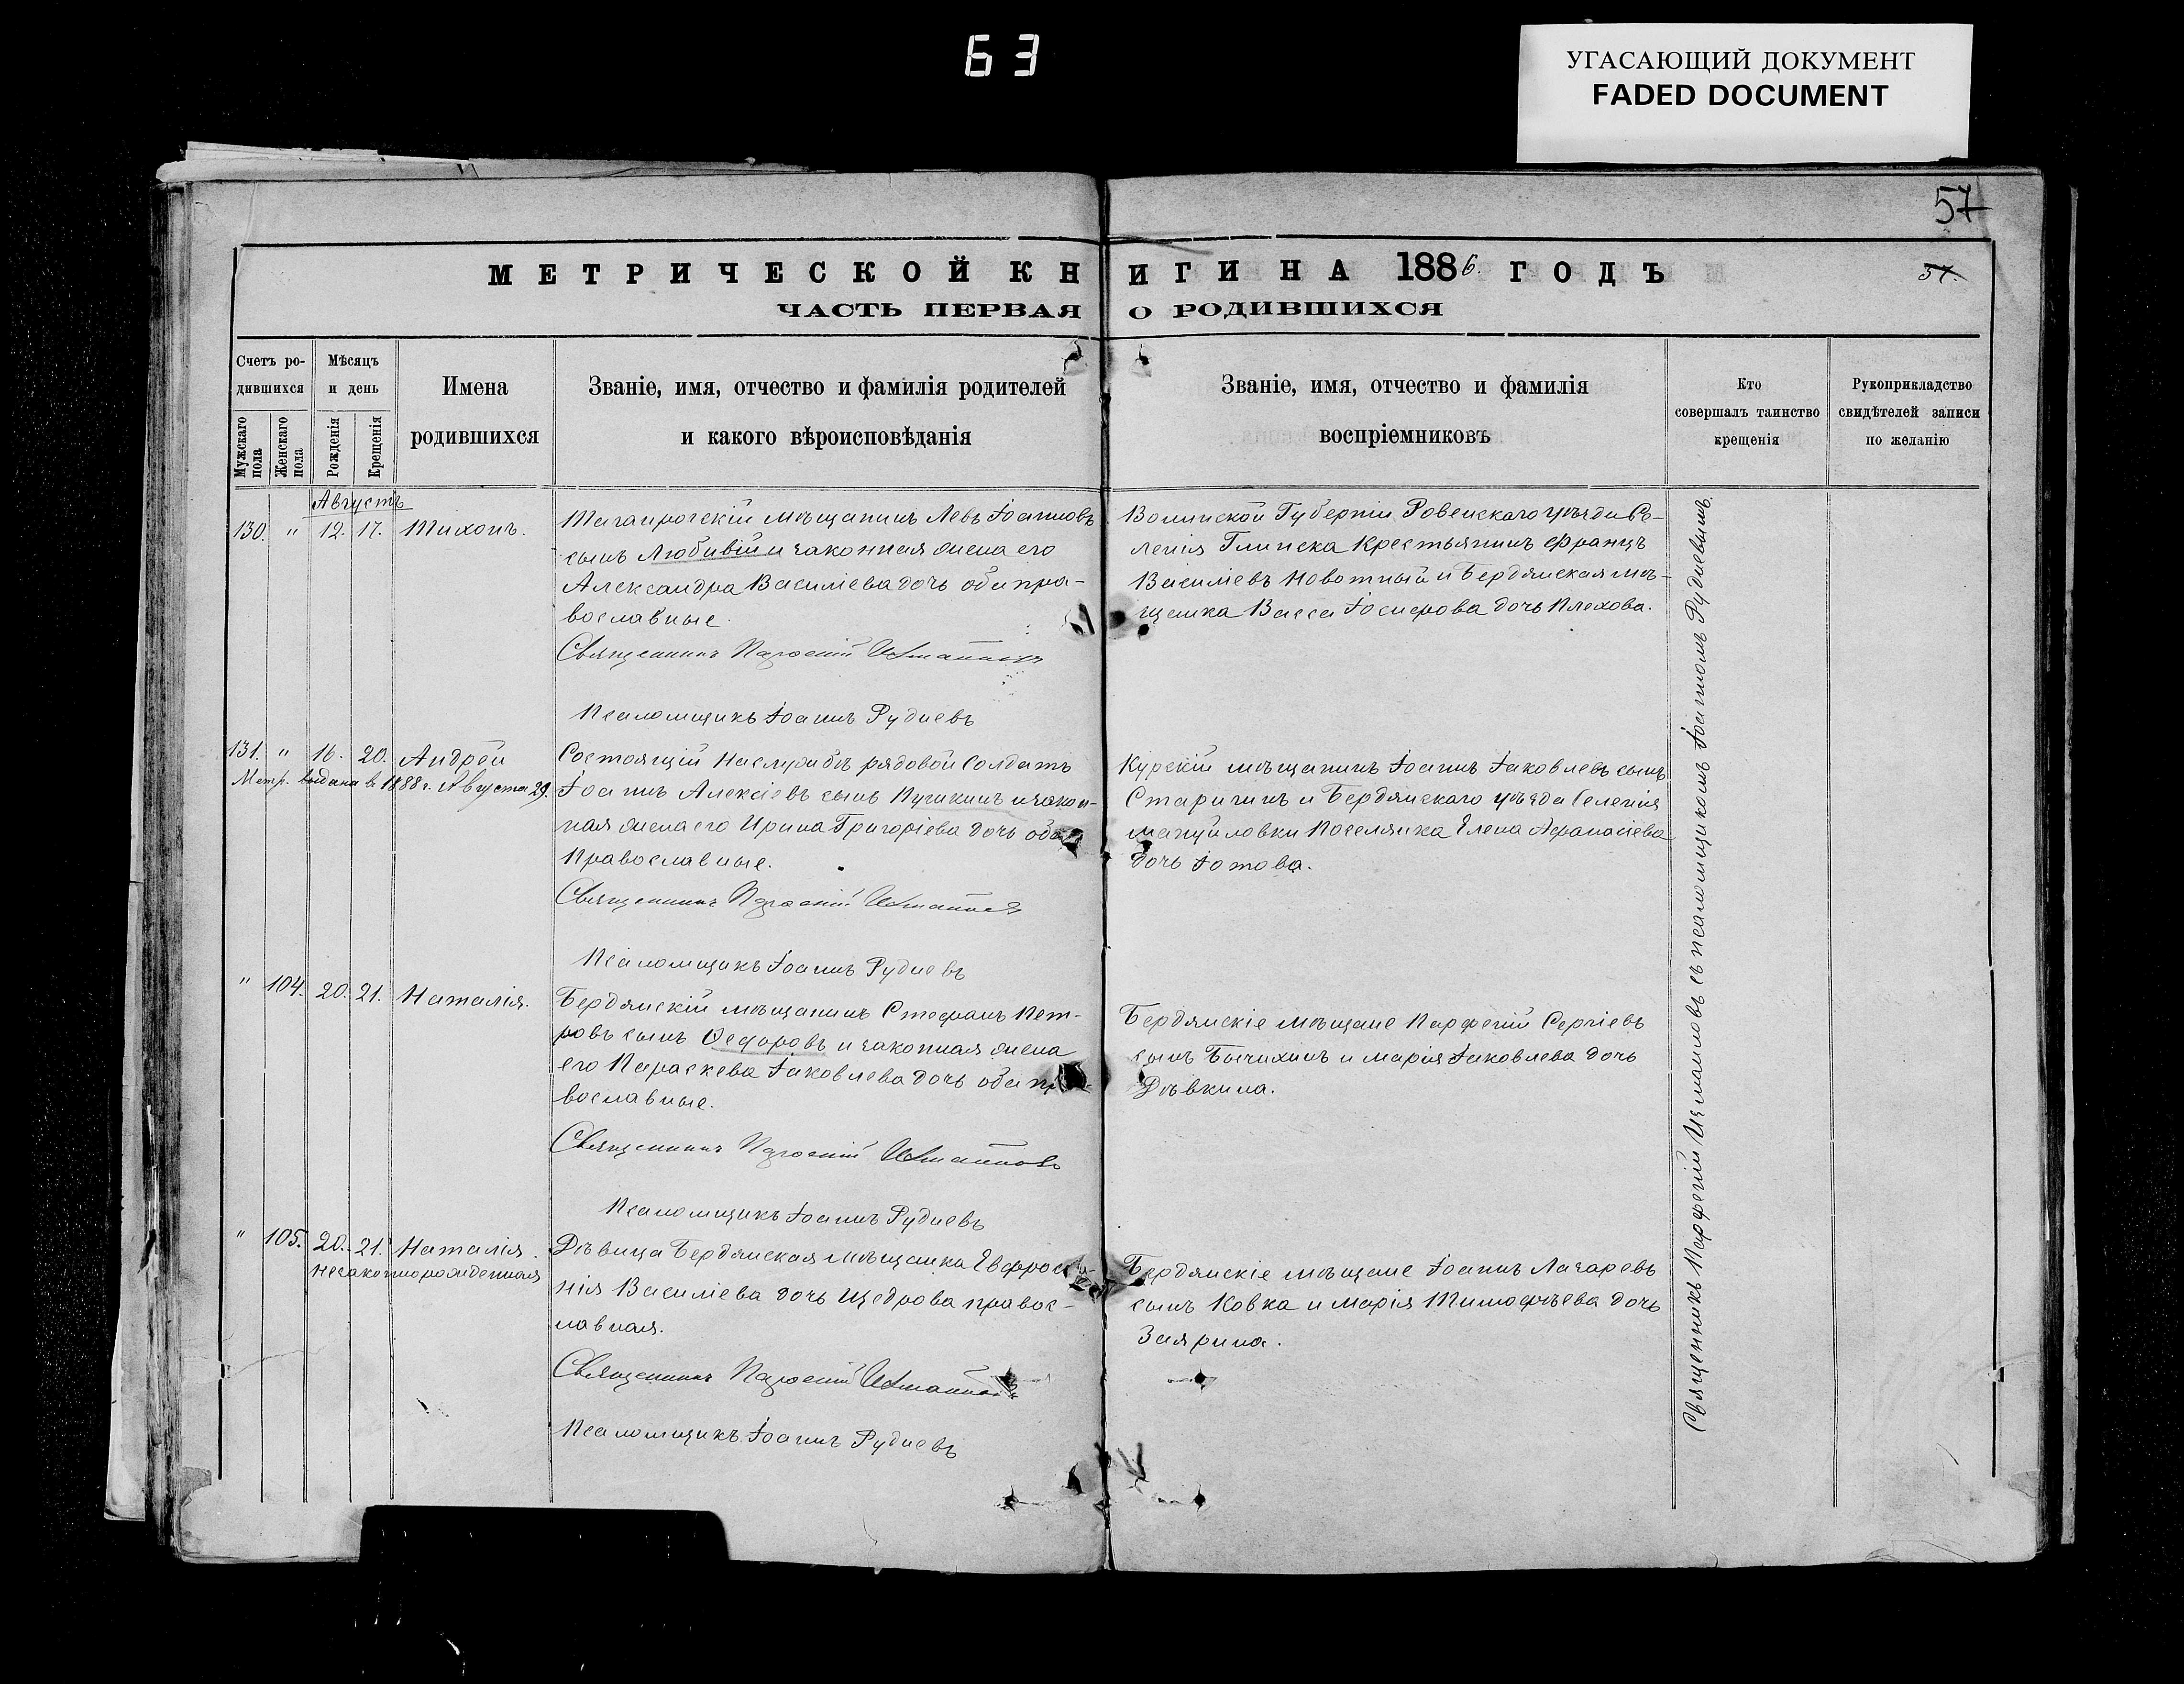 63
УГАСАЮЩИЙ ДОКУМЕНТ
FADED DOCUMENT
57
МЕТРИЧЕСКОЙ КНИГИ НА 1886. ГОДЪ
57.
ЧАСТЬ ПЕРВАЯ О РОДИВШИХСЯ
Счетъ родившихся
Мужскаго пола
Женскаго пола
Мѣсяцъ и день
Рожденія
Крещенія
Имена родившихся
Званіе, имя, отчество и фамилія родителей
и какого вѣроисповѣданія
Званіе, имя, отчество и фамилія
воспріемниковъ
Кто
совершалъ таинство
крещенія
Рукоприкладство
свидѣтелей записи
по желанію
Августъ
130. " 12. 17. Тихонъ.
Таганрогскій мѣщанинъ Левъ Іоанновъ
сынъ Любивій и законная жена его
Александра Василіева дочь оба пра-
вославные.
Священникъ
Псаломщикъ Іоаннъ Рудневъ
Волинской Губерніи Ровенскаго уѣзда Се-
ленія Глинска Крестьянинъ Францъ
Василіевъ Новотный и Бердянская мѣ-
щанка Васса Іосифова дочь Плехова.
131. " 16. 20. Андрей
Метр. выдана в 1888 г. Августа 29.
Состоящій На службѣ рядовой Солдатъ
Іоаннъ Алексіевъ сынъ Пушкинъ и закон-
ная жена его Ирина Григоріева дочь оба
Православные.
Священникъ
Псаломщикъ Іоаннъ Рудневъ
Курскій мѣщанинъ Іоаннъ Іаковлевъ сынъ
Старичинъ и Бердянскаго уѣзда Селенія
мануйловки Поселянка Елена Афанасіева
дочь Іотова.
" 104. 20. 21. Наталія.
Бердянскій мѣщанинъ Стефанъ Пет-
ровъ сынъ Ѳедоровъ и законная жена
его Параскева Іаковлева дочь оба пра-
вославные.
Священникъ
Псаломщикъ Іоаннъ Рудневъ
Бердянскіе мѣщане Парфеній Сергіевъ
сынъ Бычихинъ и Марія Іаковлева дочь
Дѣвкина.
" 105. 20. 21. Наталія.
незаконнорожденная
Дѣвица Бердянская мѣщанка Евфроси-
нія Василіева дочь Щедрова правос-
лавная.
Священникъ
Псаломщикъ Іоаннъ Рудневъ
Бердянскіе мѣщане Іоаннъ Лазаревъ
сынъ Ковка и Марія Тимофѣева дочь
Заярина.
Священникъ Парфеній Измаиловъ съ псаломщикомъ Іоанномъ Рудневымъ.